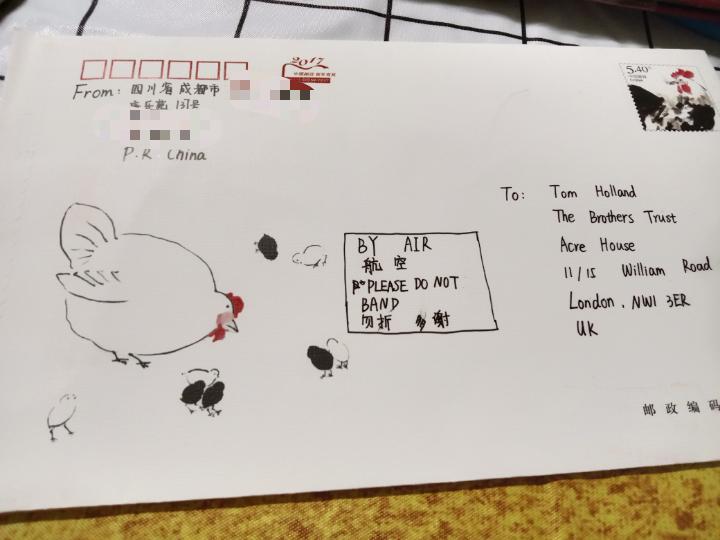 2017
From: 四川省成都市
131号
P.R. China
5.40元
To: Tom Holland
The Brothers Trust
Acre House
11/15 William Road
London, NW1 3ER
UK
BY AIR
航空
PLEASE DO NOT
BAND
勿折 多谢
邮政编码